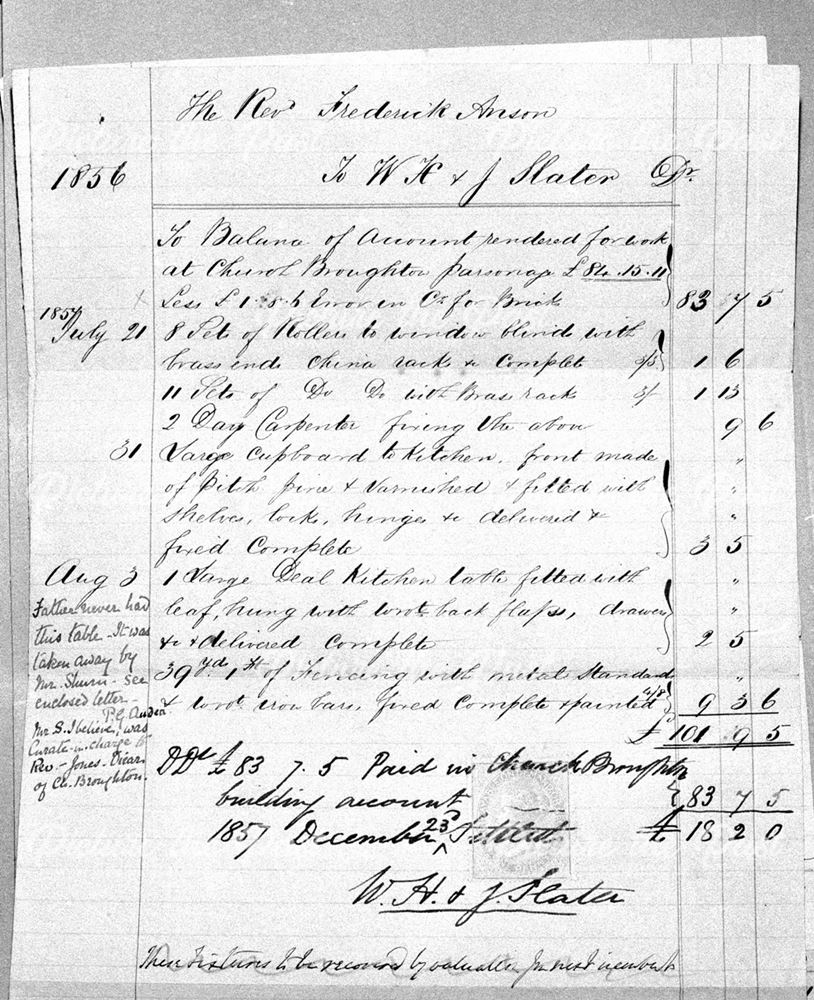 The Revd Frederick Anson
1856 To W H & J Slater Dr.
To Balance of Account rendered for work
at Church Broughton parsonage £84.15.11
Less £1.8.6 Error in Cr for Brick 83 7 5
1857
July 21 8 Sets of Rollers to window blinds with
brass ends China rack & Complete 3/3 1 6
11 Sets of Do Do with Brass rack 3/ 1 13
2 Days Carpenter fixing the above 9 6
31 Large Cupboard to Kitchen, front made
of Pitch pine & Varnished & fitted with
shelves, locks, hinges &c delivered &
fixed Complete 3 5
Aug 3 1 Large Deal Kitchen table fitted with
leaf, hung with wrot back flaps, drawer
&c & delivered complete 2 5
39 yds 1 ft of Fencing with metal Standards
& wrot iron bars, fixed Complete & painted 4/8 9 3 6
£ 101 9 5
Father never had
this table - It was
taken away by
Mr. Shurn - see
enclosed letter -
Mr. S. I believe, was
Curate-in-charge to
Rev. - Jones - Vicar
of Ch. Broughton.
£83 7. 5 Paid in Church Broughton
building account 83 7 5
1857 December 23d Settled £ 18 2 0
W. H. & J. Slater
These fixtures to be received by valuation from next incumbent